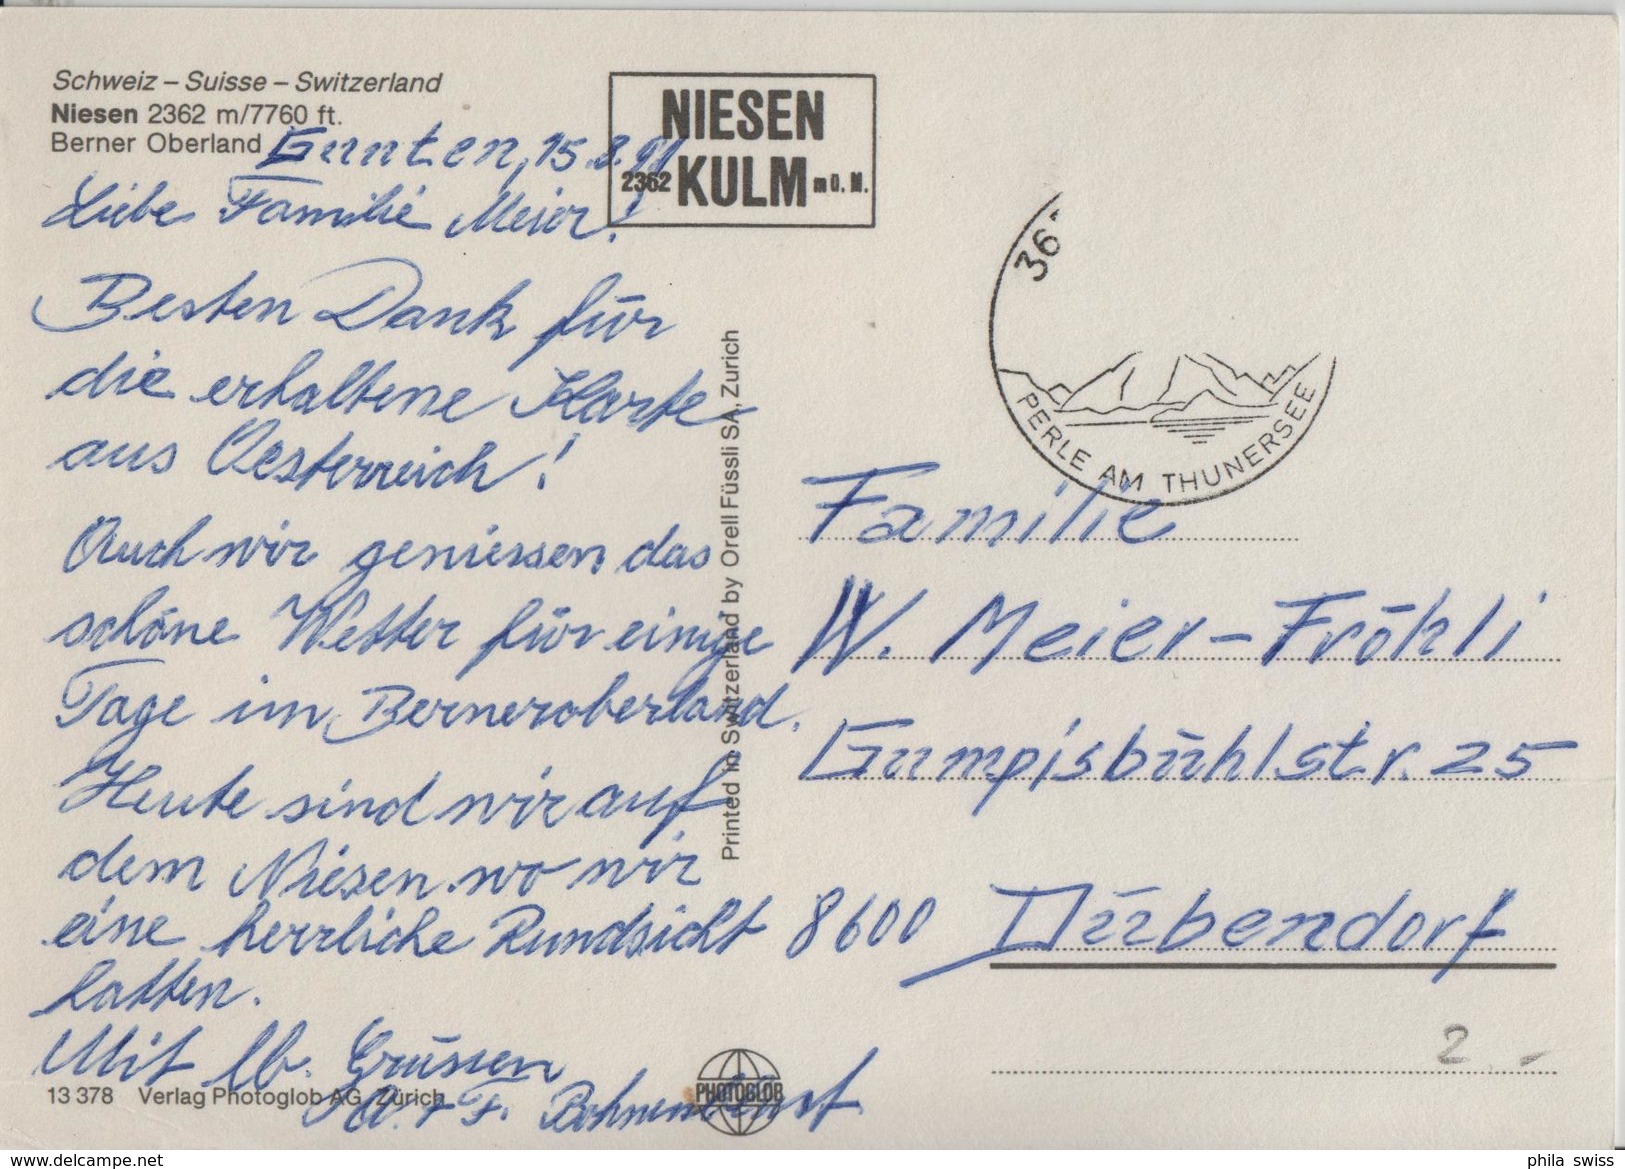 Schweiz – Suisse – Switzerland
Niesen 2362 m/7760 ft.
Berner Oberland
Gunten, 15.8.91
NIESEN
2362 KULM m ü. M.
Liebe Familie Meier!
Besten Dank für
die erhaltene Karte
aus Oesterreich!
Auch wir geniessen das
schöne Wetter für einige
Tage im Berneroberland.
Heute sind wir auf
dem Niesen wo wir
eine herrliche Rundsicht
hatten.
Mit lb. Grüssen
+ F.
13 378 Verlag Photoglob AG, Zürich
PHOTOGLOB
Printed in Switzerland by Orell Füssli SA, Zurich
36
PERLE AM THUNERSEE
Familie
W. Meier-Fröhli
Gumpisbühlstr. 25
8600 Dübendorf
2.-
delcampe.net
phila_swiss